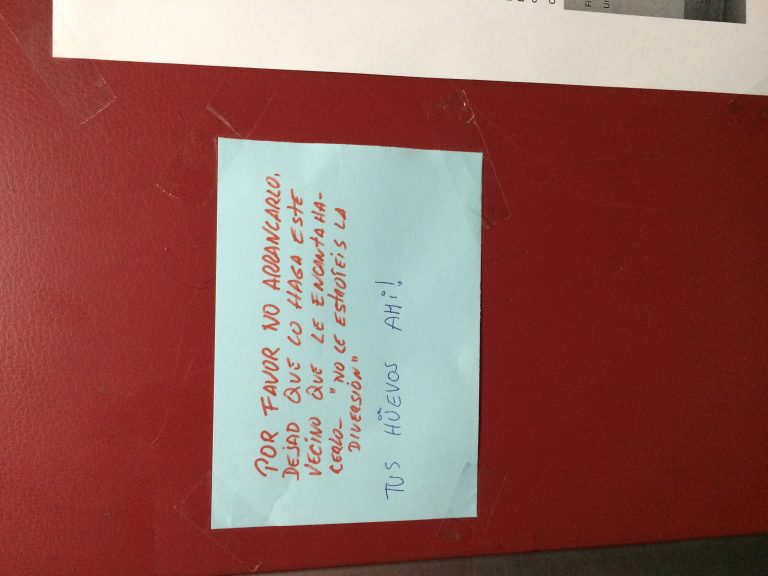 POR FAVOR NO ARRANCARLO.
DEJAD QUE LO HAGA ESTE
VECINO QUE LE ENCANTA HA-
CERLO_ "NO LE ESTROPEIS LA
DIVERSIÓN"
TUS HÜEVOS AHI!